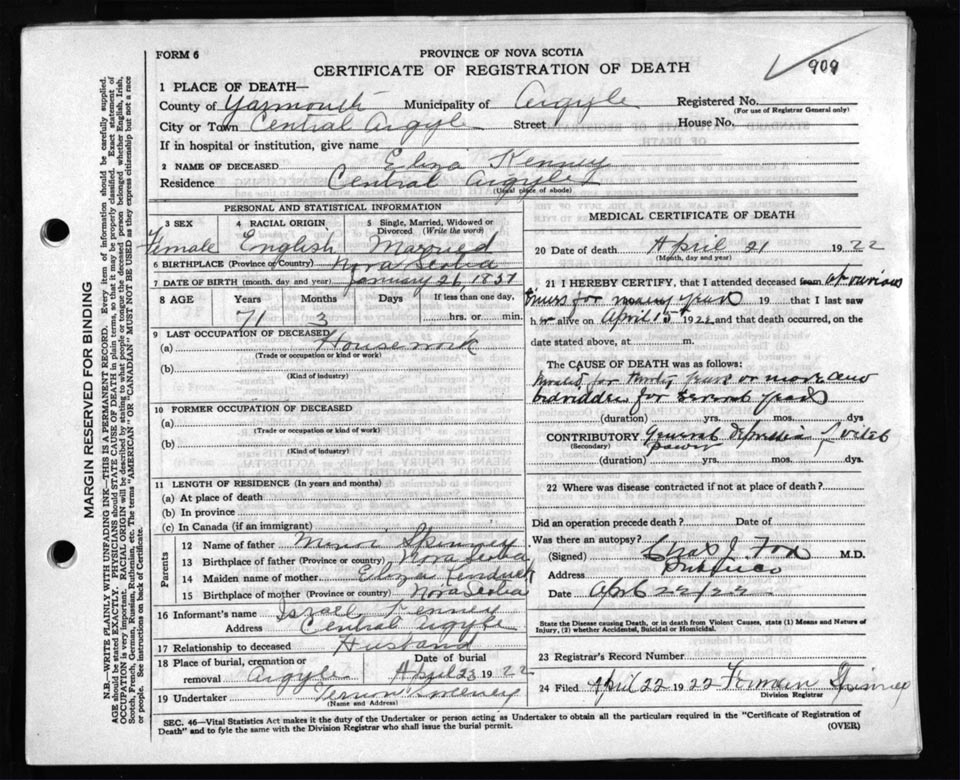 FORM 6
PROVINCE OF NOVA SCOTIA
CERTIFICATE OF REGISTRATION OF DEATH
909
1 PLACE OF DEATH—
County of Yarmouth Municipality of Argyle Registered No.
(For use of Registrar General only)
City or Town Central Argyle Street House No.
If in hospital or institution, give name
2 NAME OF DECEASED Eliza Kenney
Residence Central Argyle
(Usual place of abode)
PERSONAL AND STATISTICAL INFORMATION
3 SEX 4 RACIAL ORIGIN 5 Single, Married, Widowed or Divorced (Write the word)
Female English Married
6 BIRTHPLACE (Province or Country) Nova Scotia
7 DATE OF BIRTH (month, day and year) January 26, 1851
8 AGE Years Months Days If less than one day,
71 3 hrs. or min.
9 LAST OCCUPATION OF DECEASED
(a) Housework
(Trade or occupation or kind or work)
(b)
(Kind of industry)
10 FORMER OCCUPATION OF DECEASED
(a)
(Trade or occupation or kind or work)
(b)
(Kind of industry)
11 LENGTH OF RESIDENCE (In years and months)
(a) At place of death
(b) In province
(c) In Canada (if an immigrant)
Parents
12 Name of father Spinney
13 Birthplace of father (Province or country) Nova Scotia
14 Maiden name of mother Eliza
15 Birthplace of mother (Province or country) Nova Scotia
16 Informant's name Israel Kenney
Address Central Argyle
17 Relationship to deceased Husband
18 Place of burial, cremation or removal Argyle Date of burial April 23 1922
19 Undertaker Vernon Sweeney
(Name and Address)
MEDICAL CERTIFICATE OF DEATH
20 Date of death April 21 1922
(Month, day and year)
21 I HEREBY CERTIFY, that I attended deceased from at various
times for many years 19 that I last saw
h alive on April 15 1922 and that death occurred, on the
date stated above, at m.
The CAUSE OF DEATH was as follows:
Invalid for thirty years or more and
bedridden for several years
(duration) yrs. mos. dys
CONTRIBUTORY General of vital
(Secondary) power
(duration) yrs. mos. dys.
22 Where was disease contracted if not at place of death?
Did an operation precede death? Date of
Was there an autopsy?
(Signed) Chas J. Fox M.D.
Address Pubnico
Date April 22/22
State the Disease causing Death, or in death from Violent Causes, state (1) Means and Nature of
Injury, (2) whether Accidental, Suicidal or Homicidal.
23 Registrar's Record Number
24 Filed April 22 1922 Forman Spinney
Division Registrar
SEC. 46—Vital Statistics Act makes it the duty of the Undertaker or person acting as Undertaker to obtain all the particulars required in the "Certificate of Registration of
Death" and to fyle the same with the Division Registrar who shall issue the burial permit.
(OVER)
MARGIN RESERVED FOR BINDING
N.B.—WRITE PLAINLY WITH UNFADING INK—THIS IS A PERMANENT RECORD. Every item of information should be carefully supplied.
AGE should be stated EXACTLY. PHYSICIANS should STATE CAUSE OF DEATH in plain terms, so that it may be properly classified. Exact statement of
OCCUPATION is very important. RACIAL ORIGIN will be described by stating to what people or tongue the deceased person belonged whether English, Irish,
Scotch, French, German, Russian, Ruthenian, etc. The terms "AMERICAN" OR "CANADIAN" MUST NOT BE USED as they express citizenship but not a race
or people. See instructions on back of Certificate.